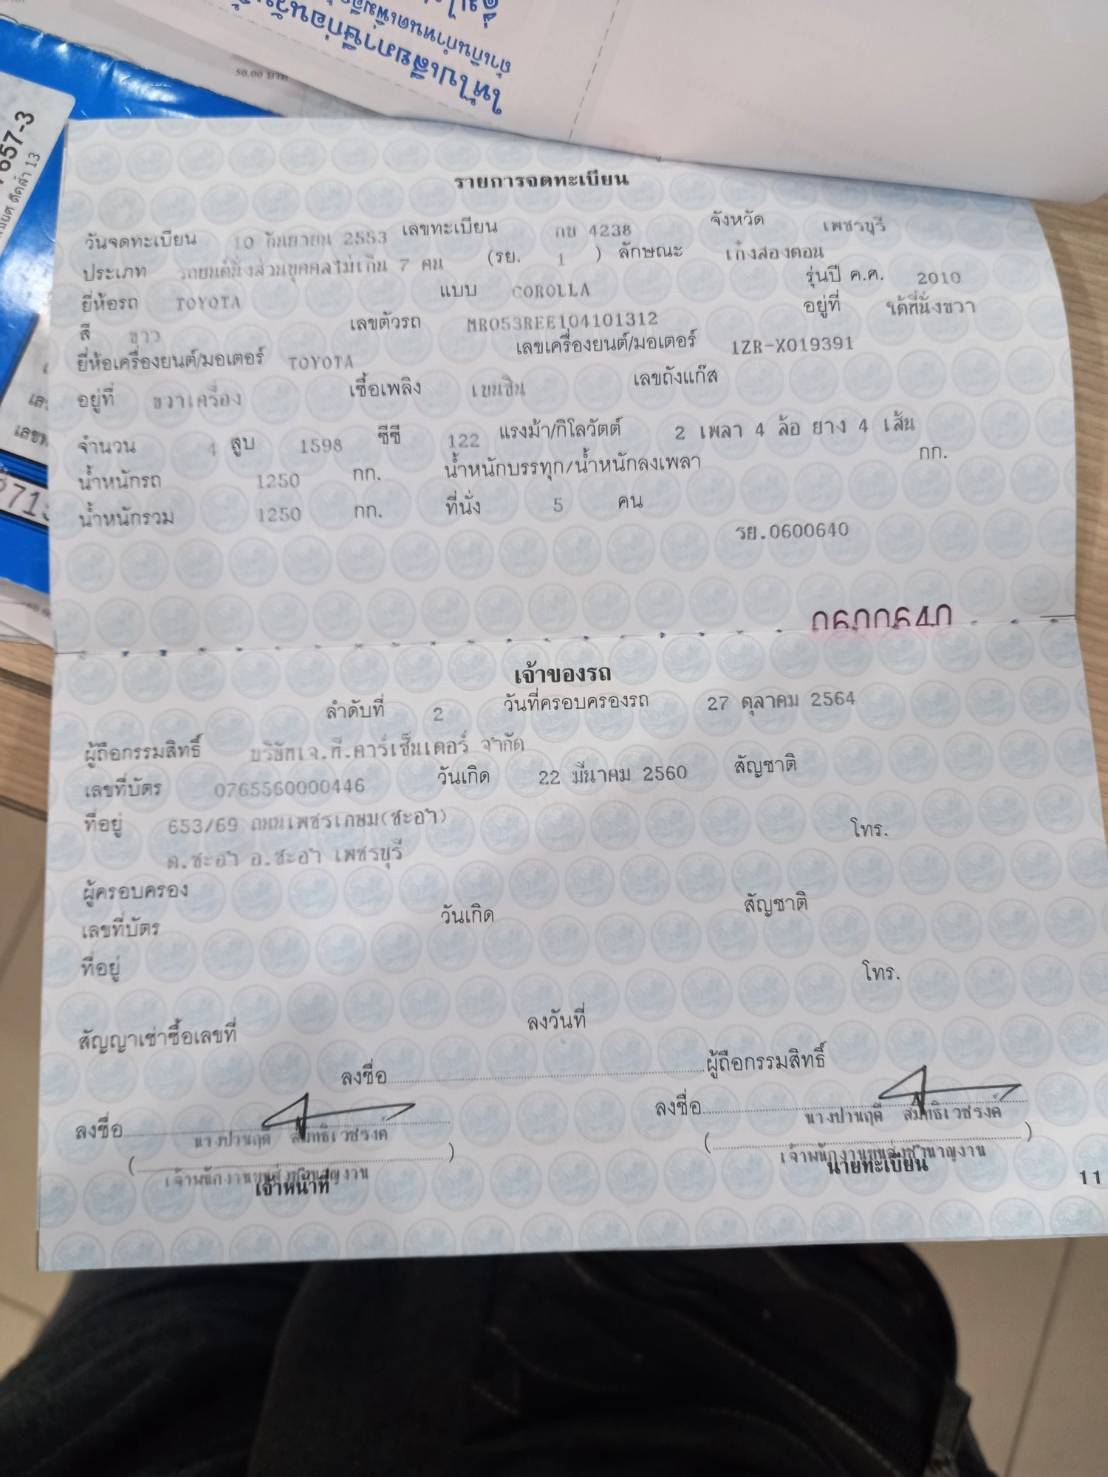 50.00 บาท
657-3
รายการจดทะเบียน
วันจดทะเบียน 10 กันยายน 2553 เลขทะเบียน กข 4238 จังหวัด เพชรบุรี
ประเภท รถยนต์นั่งส่วนบุคคลไม่เกิน 7 คน (รย. 1 ) ลักษณะ เก๋งสองตอน
ยี่ห้อรถ TOYOTA แบบ COROLLA รุ่นปี ค.ศ. 2010
สี ขาว เลขตัวรถ MR053REE104101312 อยู่ที่ ใต้ที่นั่งขวา
ยี่ห้อเครื่องยนต์/มอเตอร์ TOYOTA เลขเครื่องยนต์/มอเตอร์ 1ZR-X019391
อยู่ที่ ขวาเครื่อง เชื้อเพลิง เบนซิน เลขถังแก๊ส
จำนวน 4 สูบ 1598 ซีซี 122 แรงม้า/กิโลวัตต์ 2 เพลา 4 ล้อ ยาง 4 เส้น
น้ำหนักรถ 1250 กก. น้ำหนักบรรทุก/น้ำหนักลงเพลา กก.
น้ำหนักรวม 1250 กก. ที่นั่ง 5 คน
รย.0600640
0600640
เจ้าของรถ
ลำดับที่ 2 วันที่ครอบครองรถ 27 ตุลาคม 2564
ผู้ถือกรรมสิทธิ์ บริษัทเจ.ที.คาร์เซ็นเตอร์ จำกัด
เลขที่บัตร 0765560000446 วันเกิด 22 มีนาคม 2560 สัญชาติ
ที่อยู่ 653/69 ถนนเพชรเกษม(ชะอำ) โทร.
ต.ชะอำ อ.ชะอำ เพชรบุรี
ผู้ครอบครอง
เลขที่บัตร วันเกิด สัญชาติ
ที่อยู่ โทร.
สัญญาเช่าซื้อเลขที่ ลงวันที่
ลงชื่อ ผู้ถือกรรมสิทธิ์
ลงชื่อ นางปานฤดี ลงชื่อ นางปานฤดี
( ) ( )
เจ้าหน้าที่ นายทะเบียน
11